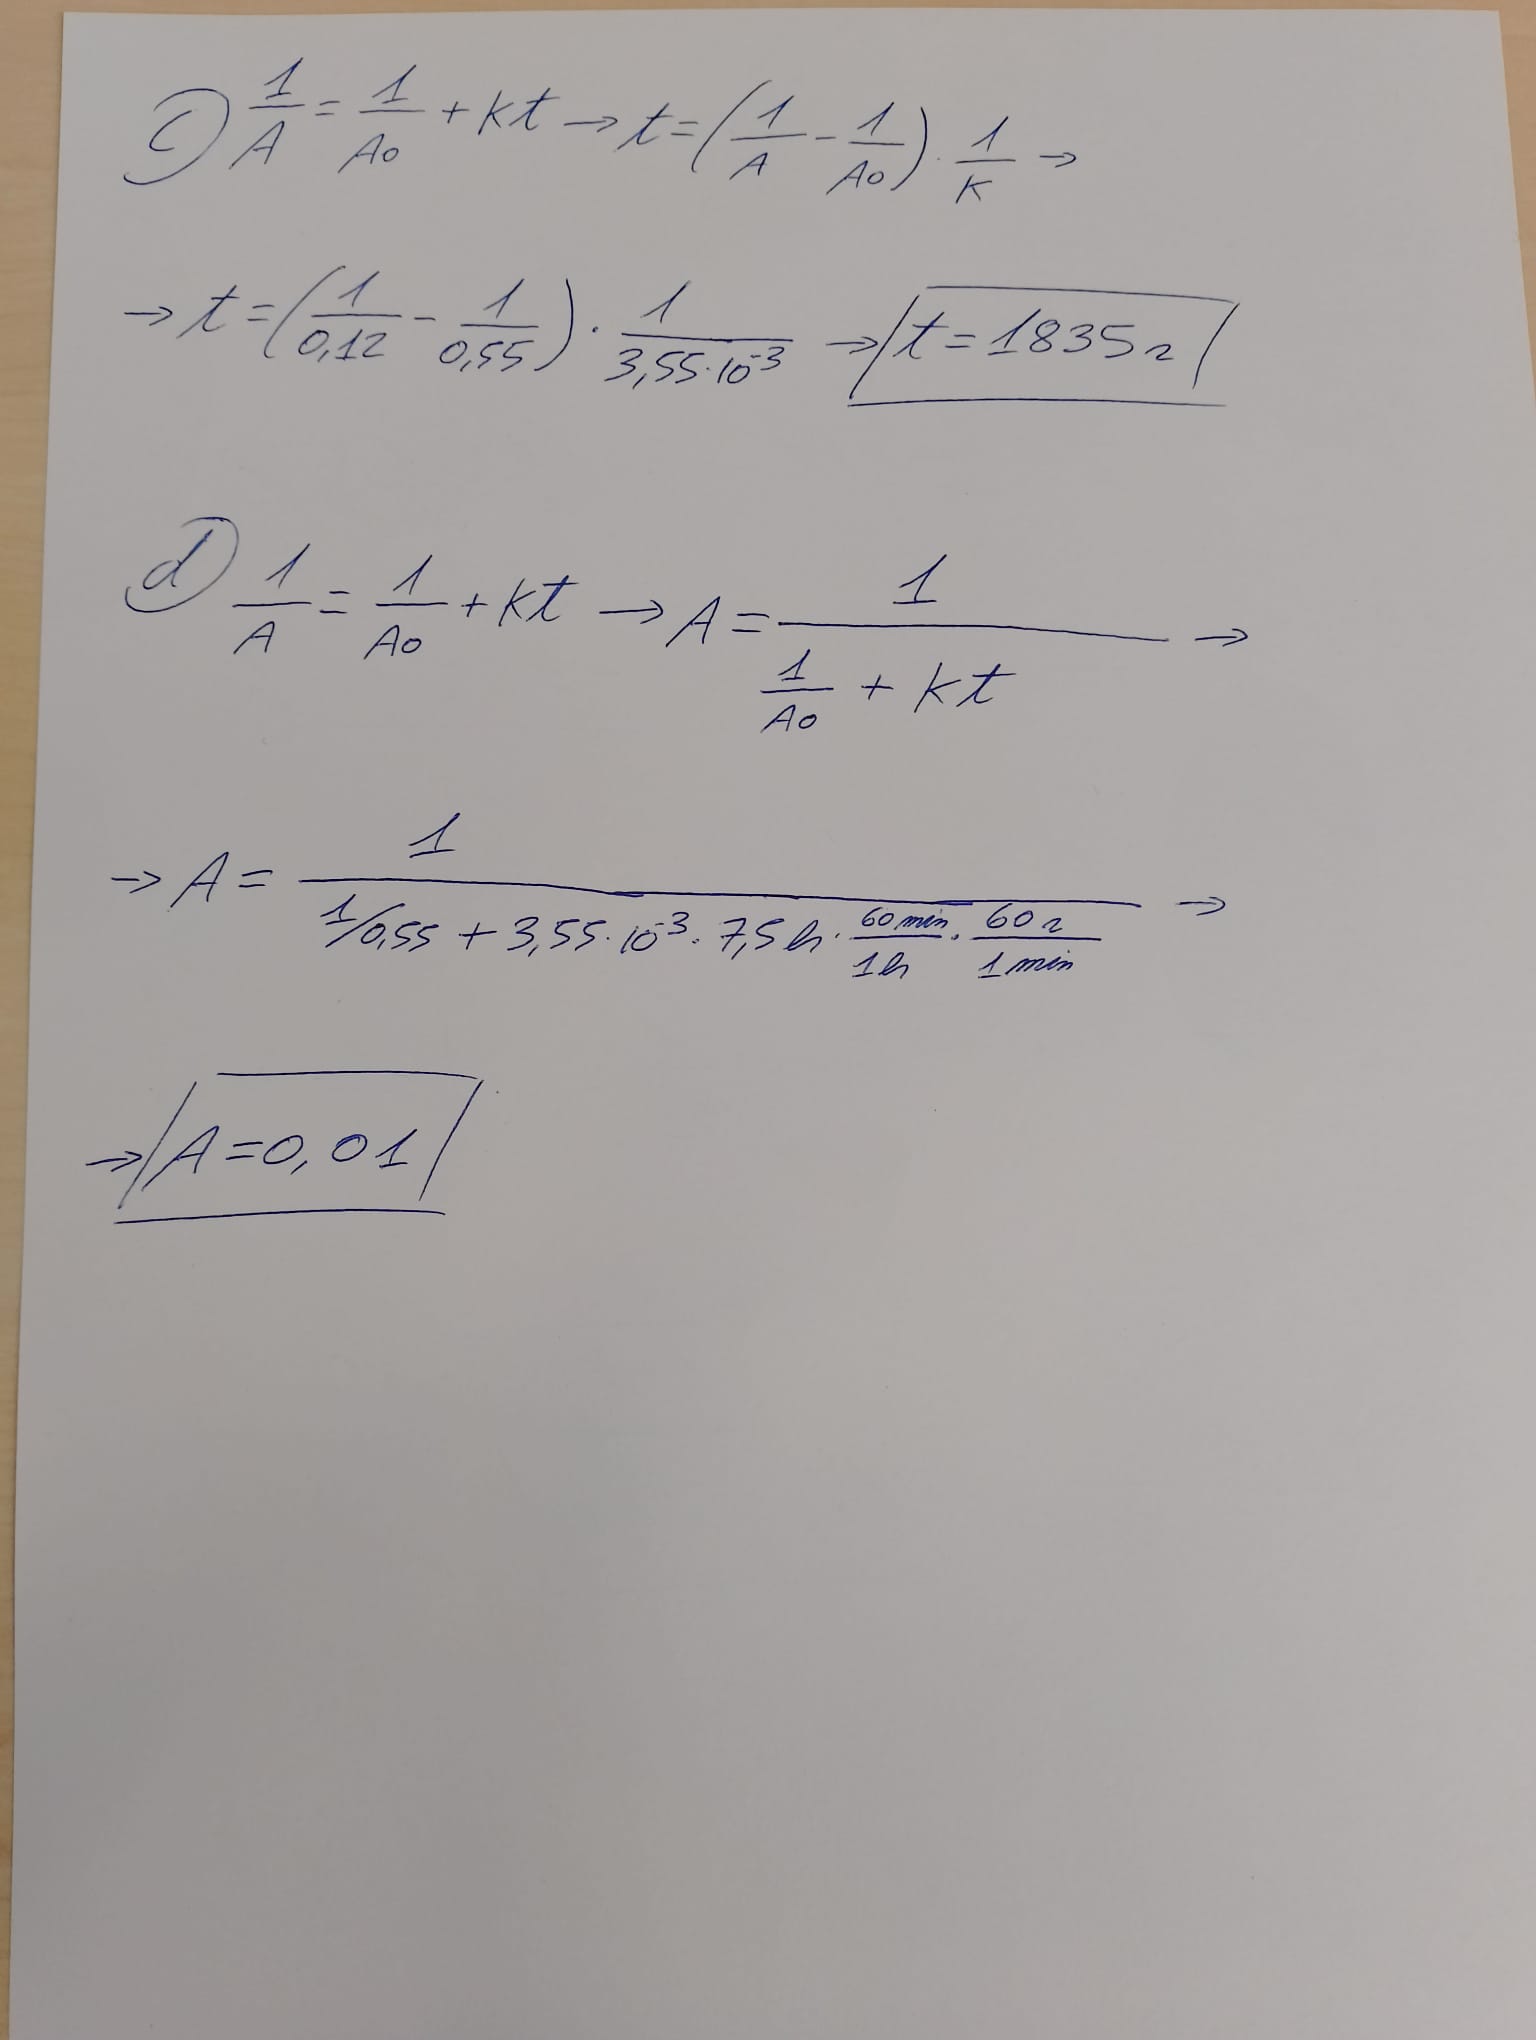 c) 1/A = 1/A0 + kt → t = (1/A - 1/A0) · 1/k →
→ t = (1/0,12 - 1/0,55) · 1/3,55·10^-3 → t = 1835 s
d) 1/A = 1/A0 + kt → A = 1/(1/A0 + kt) →
→ A = 1/(1/0,55 + 3,55·10^-3 · 7,5h · 60min/1h · 60s/1min) →
→ A = 0,01